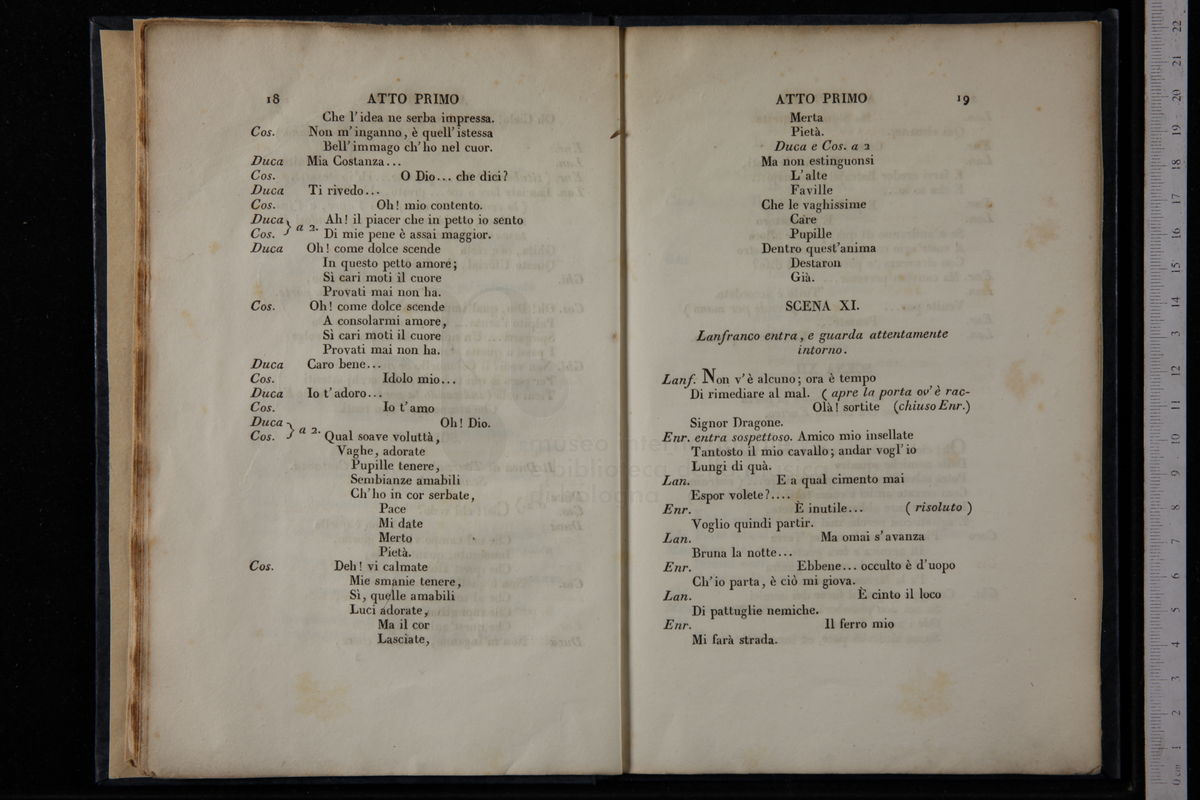 18 ATTO PRIMO
Che l'idea ne serba impressa.
Cos. Non m'inganno, è quell'istessa
Bell'immago ch'ho nel cuor.
Duca Mia Costanza...
Cos. O Dio... che dici?
Duca Ti rivedo...
Cos. Oh! mio contento.
Duca } a 2. Ah! il piacer che in petto io sento
Cos. } Di mie pene è assai maggior.
Duca Oh! come dolce scende
In questo petto amore;
Sì cari moti il cuore
Provati mai non ha.
Cos. Oh! come dolce scende
A consolarmi amore,
Sì cari moti il cuore
Provati mai non ha.
Duca Caro bene...
Cos. Idolo mio...
Duca Io t'adoro...
Cos. Io t'amo
Duca } a 2. Oh! Dio.
Cos. } Qual soave voluttà,
Vaghe, adorate
Pupille tenere,
Sembianze amabili
Ch'ho in cor serbate,
Pace
Mi date
Merto
Pietà.
Cos. Deh! vi calmate
Mie smanie tenere,
Sì, quelle amabili
Luci adorate,
Ma il cor
Lasciate,
ATTO PRIMO 19
Merta
Pietà.
Duca e Cos. a 2
Ma non estinguonsi
L'alte
Faville
Che le vaghissime
Care
Pupille
Dentro quest'anima
Destaron
Già.
SCENA XI.
Lanfranco entra, e guarda attentamente
intorno.
Lanf. Non v'è alcuno; ora è tempo
Di rimediare al mal. ( apre la porta ov'è rac-
Olà! sortite (chiuso Enr.)
Signor Dragone.
Enr. entra sospettoso. Amico mio insellate
Tantosto il mio cavallo; andar vogl'io
Lungi di quà.
Lan. E a qual cimento mai
Espor volete?....
Enr. È inutile... ( risoluto )
Voglio quindi partir.
Lan. Ma omai s'avanza
Bruna la notte...
Enr. Ebbene... occulto è d'uopo
Ch'io parta, è ciò mi giova.
Lan. È cinto il loco
Di pattuglie nemiche.
Enr. Il ferro mio
Mi farà strada.